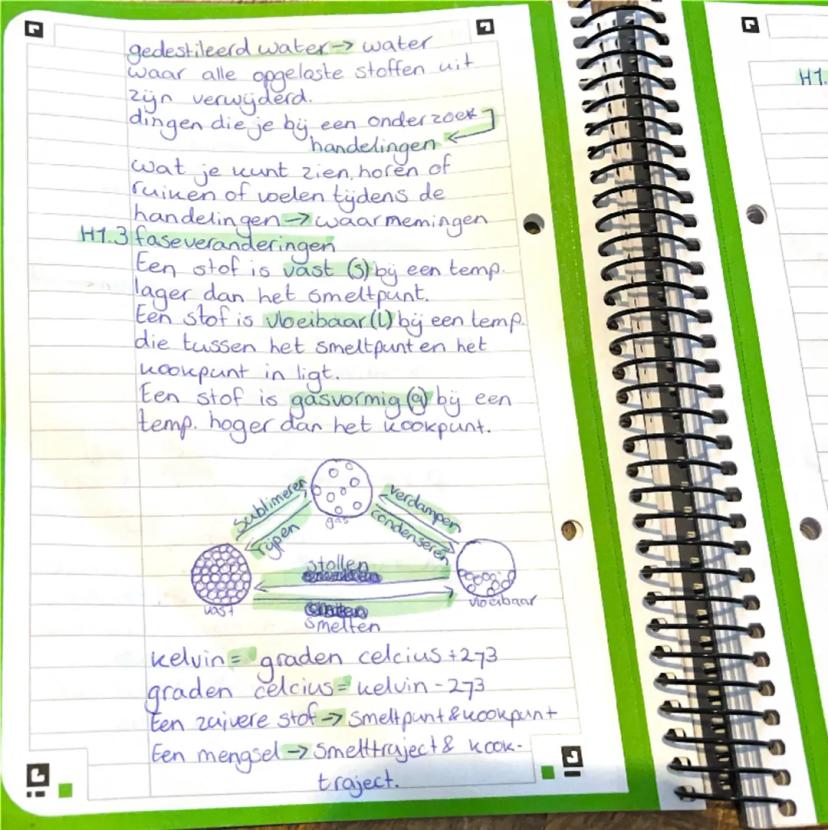 gedestileerd water → water
waar alle opgelaste stoffen uit
zijn verwijderd.
dingen die je bij een onderzoek
handelingen
wat je kunt zien, horen of
ruiken of voelen tijdens de
handelingen → waarnemingen
H1.
H1.3 faseveranderingen
Een stof is vast (s) bij een temp.
lager dan het smeltpunt.
Een stof is vloeibaar (L) bij een temp.
die tussen het smeltpunt en het
kookpunt in ligt.
Een stof is gasvormig (g) bij een
temp. hoger dan het kookpunt.
sublimeren
rijpen
gas
verdampen
condenseren
stollen
vast
vloeibaar
smelten
kelvin = graden celcius + 273
graden celcius = kelvin - 273
Een zuivere stof → smeltpunt & kookpunt
Een mengsel → smelttraject & kook-
traject.